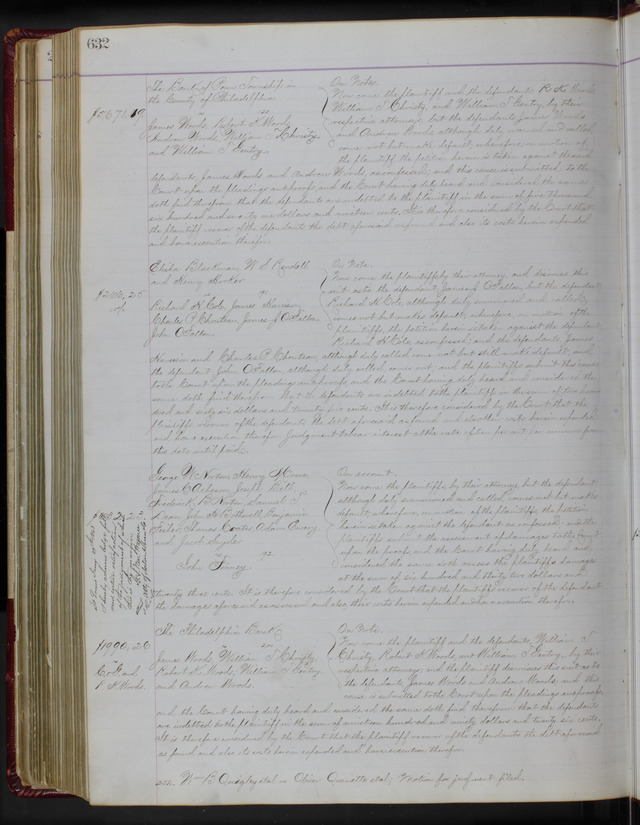 632
The Bank of Penn Township in
the County of Philadelphia
$5671.19
vs
James Woods Robert K Woods
Andrew Woods William T Christy
and William S Gentry
On Notes.
Now come the plaintiff and the defendants R K Woods
William T Christy and William S Gentry, by their
respective attorneys but the defendants James Woods
and Andrew Woods although duly and called
come not but make default, wherefore, on motion of
the plaintiff the petition herein is taken against the said
defendants James Woods and Andrew Woods, as confessed; and this cause is submitted to the
Court upon the pleadings and proofs and the Court having duly heard and considered the same
doth find therefrom that the defendants are indebted to the plaintiff in the sum of five thousand
six hundred and seventy one dollars and nineteen cents. It is therefore considered by the Court that
the plaintiff recover of the defendants the debt aforesaid as found and also its costs herein expended
and have execution therefor.
Elisha Blackman, W S Randall
and Henry
vs
Richard H Cole, James Harrison
Charles P Chouteau, James J O'Fallon
John O'Fallon
On Note.
Now come the plaintiffs by their attorney, and dismiss this
suit as to the defendant James J O'Fallon, but the defendant
Richard H Cole, although duly summoned and called,
comes not but makes default; wherefore, on motion of the
plaintiffs, the petition herein is taken against the defendant
Richard H Cole, as confessed: and the defendants James
Harrison and Charles P Chouteau, although duly called come not but still make default; and
the defendant John O'Fallon, although duly called, comes not; and the plaintiffs submit this cause
to the Court upon the pleadings and proofs, and the Court having duly heard and considered the
same doth find therefrom that the defendants are indebted to the plaintiffs in the sum of
hundred and sixty six dollars and twenty five cents. It is therefore considered by the Court that the
plaintiffs recover of the defendants the debt aforesaid as found and also their costs herein expended
and have execution therefor. Judgment to bear interest at the rate of ten per cent per annum from
this date until paid.
George W Norton, Henry
James C Acheson, Joseph Hall
Frederick B Norton, Samuel S
John H Bothwell, Benjamin
Foster, Thomas Coates Adam
and Jacob Snyder
vs
John Finney
On account.
Now come the plaintiffs by their attorney, but the defendant
although duly summoned and called, comes not but makes
default; wherefore, on motion of the plaintiffs the petition
herein is taken against the defendant as confessed: and the
plaintiffs submit the assessment of damages to the Court
upon the proofs, and the Court having duly heard and
considered the same doth assess the plaintiffs damages
at the sum of six hundred and thirty two dollars and
twenty three cents. It is therefore considered by the Court that the plaintiffs recover of the defendant
the damages aforesaid as assessed and also their costs herein expended and have execution therefor.
The Philadelphia Bank
$1990.26
vs
James Woods, William T Christy
Robert K Woods, William S Gentry
and Andrew Woods.
On Note.
Now come the plaintiff and the defendants, William T
Christy, Robert K Woods and William S Gentry, by their
respective attorneys; and the plaintiff dismisses this suit as to
the defendants James Woods and Andrew Woods; and this
cause is submitted to the Court upon the pleadings and proofs
and the Court having duly heard and considered the same doth find therefrom that the defendants
are indebted to the plaintiff in the sum of nineteen hundred and ninety dollars and twenty six cents.
It is therefore considered by the Court that the plaintiff recover of the defendants the debt aforesaid
as found and also its costs herein expended and have execution therefor.
Wm B Quigley et al vs Oliver Quinette et al; Motion for judgment filed.